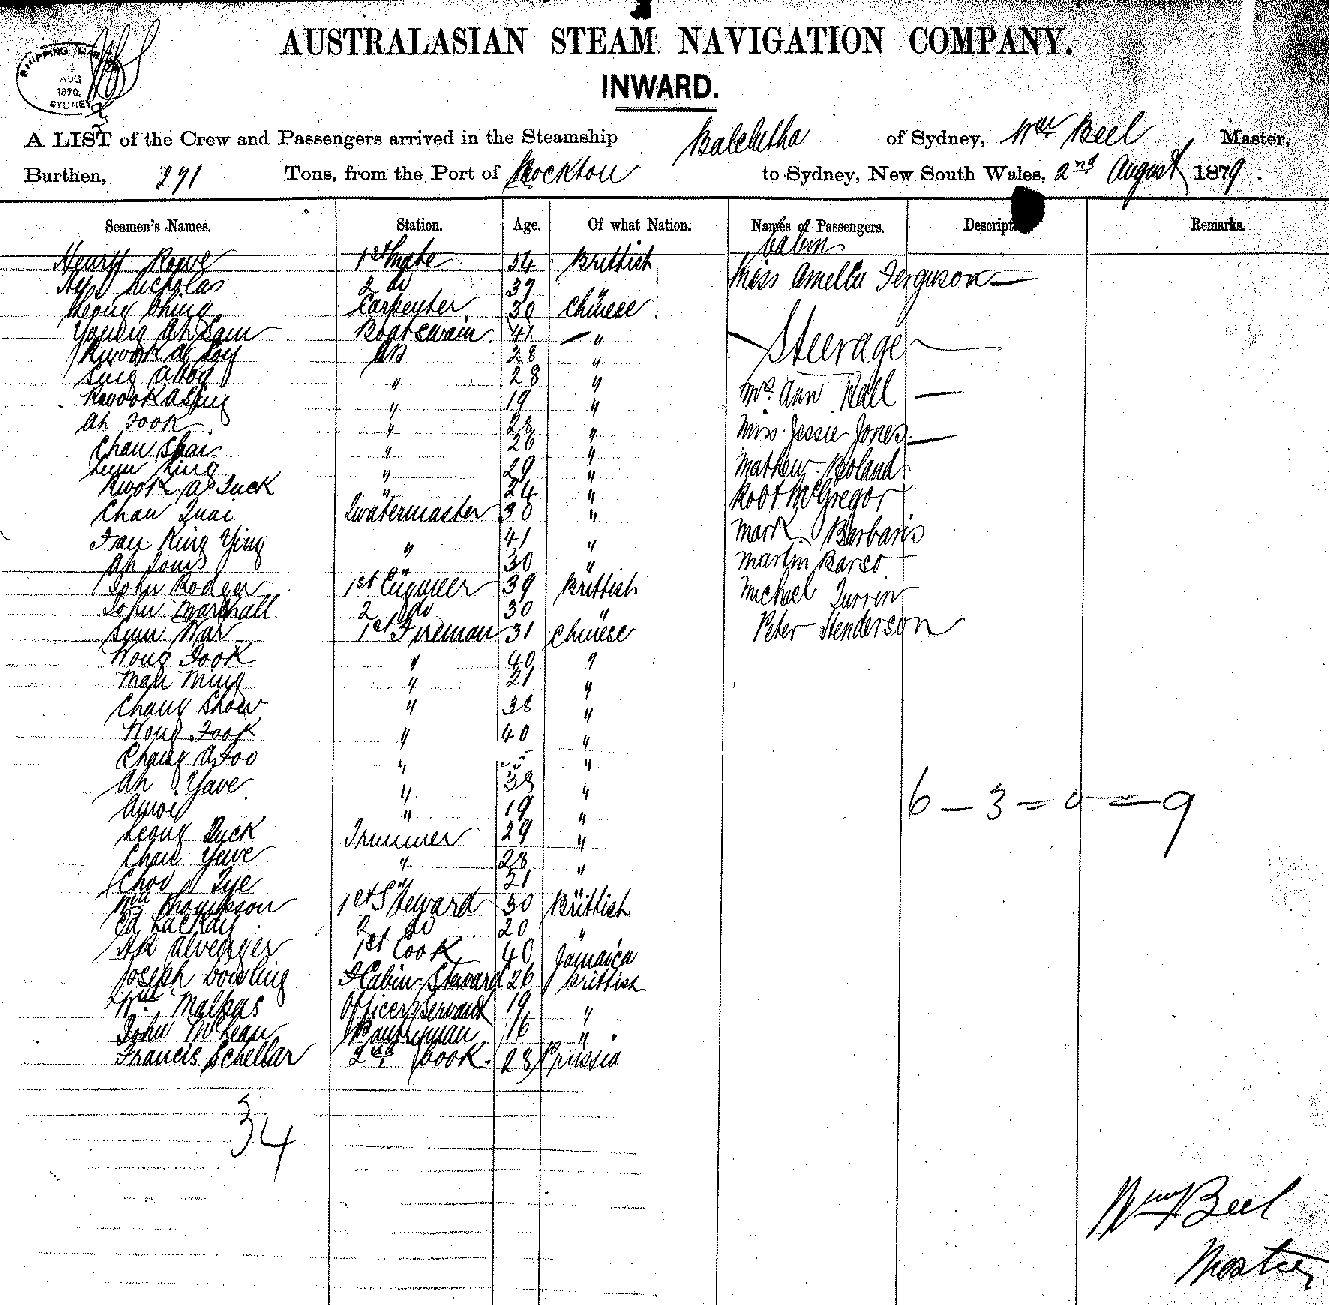 SHIPPING
AUG
SYDNEY
AUSTRALASIAN STEAM NAVIGATION COMPANY.
INWARD.
A LIST of the Crew and Passengers arrived in the Steamship Balclutha of Sydney, Wm Beel Master,
Burthen, 271 Tons, from the Port of Rockton to Sydney, New South Wales, 2nd August 1879.
Seamen's Names. Station. Age. Of what Nation. Names of Passengers. Descript Remarks.
Cabin
Henry Rowe 1st Mate 34 Brittish Miss Amelia Ferguson
Nicholas 2 do 39 "
Leong Ching Carpenter 30 Chinese
Young Ah Sam Boatswain 41 "
Steerage
Kwook A Loy AB 28 "
Sing Ahoy " 28 "
Kwook A Sing " 19 " Mrs Ann Hall
Ah Fook " 28 "
Chan Shai " 26 " Miss Jessie Jones
Lum King " 29 " Mathew Boland
Kwok A Tuck " 24 " Robt McGregor
Chan Quai Quatermaster 30 "
Tran King Ying " 41 " Mark Barbaris
Ah Louis 30 " Martin Barco
John Rodger 1st Engineer 39 Brittish Michael Turrin
John Marshall 2 do 30 "
Lum War 1st Fireman 31 Chinese Peter Henderson
Wong Fook " 40 "
Mah Ming " 21 "
Chang Show " 38 "
Wong Fook " 40 "
Chang A Foo " "
Ah Yave " 38 "
" 19 "
Leong Duck Trimmer 29 "
Chan Yave " 28 "
Choo Tye " 21
Wm Thompson 1st Steward 30 Brittish
Ed Lackay 2 do 20 "
Alverger 1st Cook 40 Jamaica
Joseph Dowling F Cabin Steward 26 Brittish
Wm Malpas Officers Servant 19 "
John McLean Pantryman 16 "
Francis Schellar 2nd Cook. 28 Prussia
6 - 3 = 0 = 9
34
Wm Beel
Master